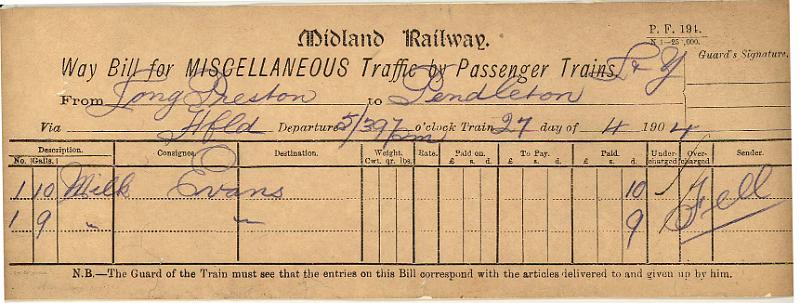 Midland Railway.
P. F. 194.
Way Bill for MISCELLANEOUS Traffic by Passenger Trains. L & Y
Guard's Signature.
From Long Preston to Pendleton
Via Hfld Departure 5/39 pm o'clock Train 27 day of 4 1904
Description. Consignee. Destination. Weight. Rate. Paid on. To Pay. Paid. Under-charged Over-charged Sender.
No. Galls. Cwt. qr. lbs. £ s. d. £ s. d. £ s. d.
1 10 Milk Evans 10 Fell
1 9 " " 9
N.B.—The Guard of the Train must see that the entries on this Bill correspond with the articles delivered to and given up by him.